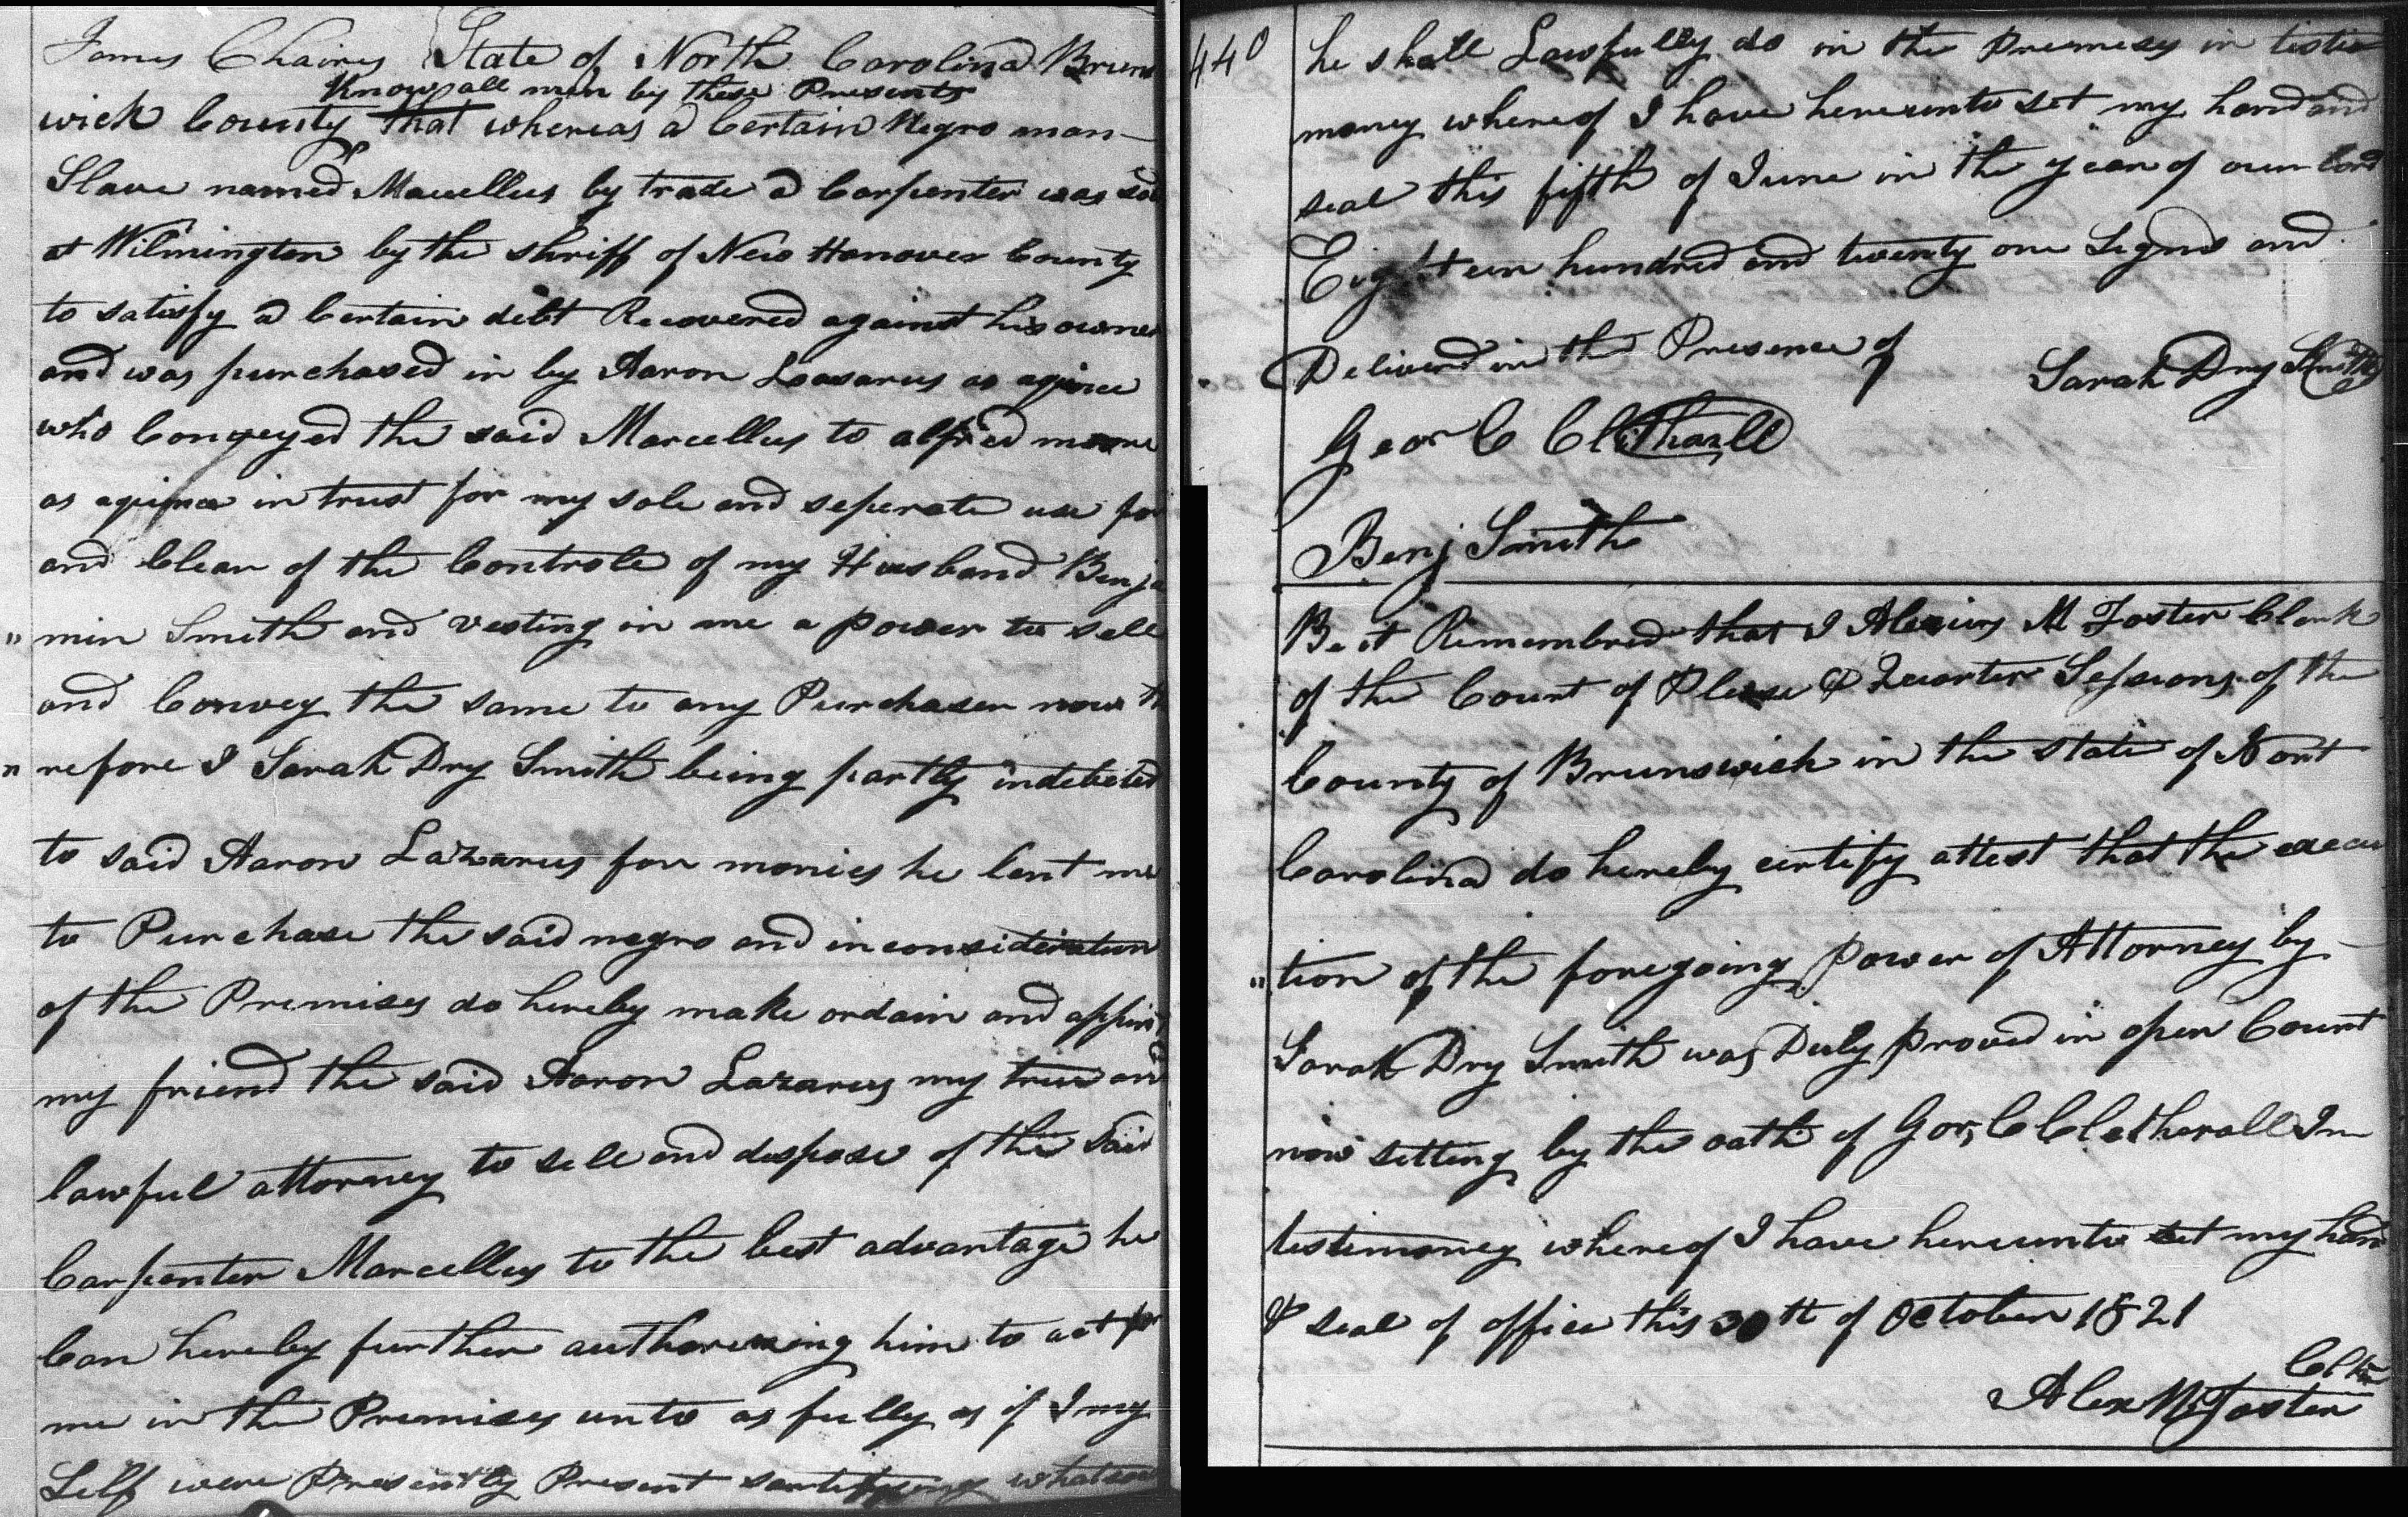 James Chairs State of North Carolina Bruns
Know all men by these Presents
wick County that whereas a Certain Negro man
Slave named Marcellus by trade a Carpenter was sol
at Wilmington by the shriff of New Hanover County
to satisfy a Certain debt Recovered against his owner
and was purchased in by Aaron Lazarus as
who Conveyed the said Marcellus to alfred moore
as in trust for my sole and seperate use for
and Clear of the Controle of my Husband Benja
" min Smith and vesting in me a power to sell
and Convey the same to any Purchaser now th
" refore I Sarah Dry Smith being partly indebted
to said Aaron Lazarus for monies he lent me
to Purchase the said negro and in consideration
of the Premises do hereby make ordain and appoint
my friend the said Aaron Lazarus my true and
lawful attorney to sell and dispose of the said
Carpenter Marcellus to the best advantage he
Can hereby further authorizing him to act for
me in the Premises unto as fully as if I my
Self were Presently Present whatsoe
440 he shall Lawfully do in the Premises in testi
money whereof I have hereunto set my hand and
seal this fifth of June in the year of our lord
Eighteen hundred and twenty one Signd and
Deliverd in the Presence of Sarah Dry Smith
Geor C Clitharll
Benj Smith
Be it Remembred that I Alexius M Foster Clerk
of the Court of Please & Quarter Sessions of the
County of Brunswick in the state of Nort
Carolina do hereby certify attest that the execu
" tion of the foregoing power of Attorney by
Sarah Dry Smith was Duly proved in open Court
now setting by the oath of Gor, C Cletherall In
testimoney whereof I have hereunto set my hand
& seal of office this 30th of October 1821
Clk
Alex M Foster